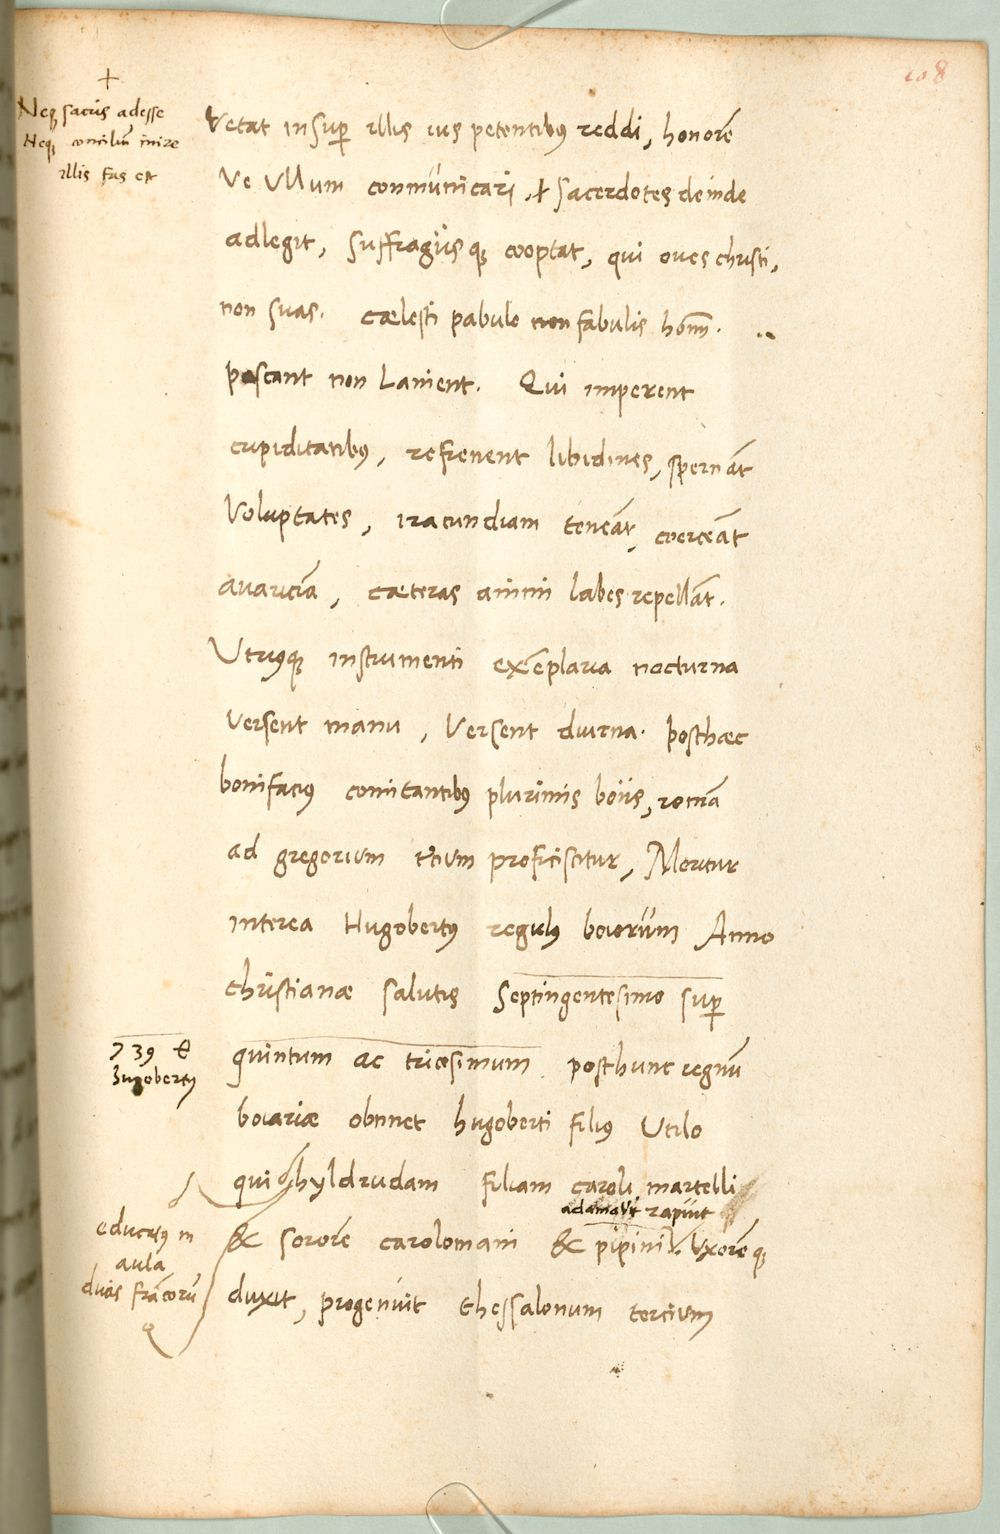 108
+
Neq3 sacris adesse
Neq3 consiliũ inire
illis fas est
Vetat insup illis ius petentibus reddi, honorẽ
Ve Vllum conmunicari, + Sacerdotes deinde
adlegit, Suffragiisq3 cooptat, qui oues christi,
non suas. cælesti pabulo non fabulis hom̃.
pascant non Lanient. Qui imperent
cupiditatibus, refrenent libidines, spernãt
Voluptates, iracundiam teneãt, coerceãt
auariciã, cæteras animi labes repellãt.
Vtriusq3 instrumenti exẽplaria nocturna
Versent manu, Versent diurna. posthæc
bonifacius comitantibus plurimis boiis, romã
ad gregorium tcium proficiscitur, Moritur
interea Hugobertus regulus boiorum Anno
christianæ salutis Septingentesimo sup
739
quintum ac tricesimum posthunc regnũ
boiariæ obtinet hugoberti filius Vtilo
qui hyldrudam filiam caroli martelli
adamauit rapuit
& sororẽ carolomani & pipini. Vxorẽq3
educatus in
aula
ducis frãcorũ
duxit, progenuit thessalonum tercium